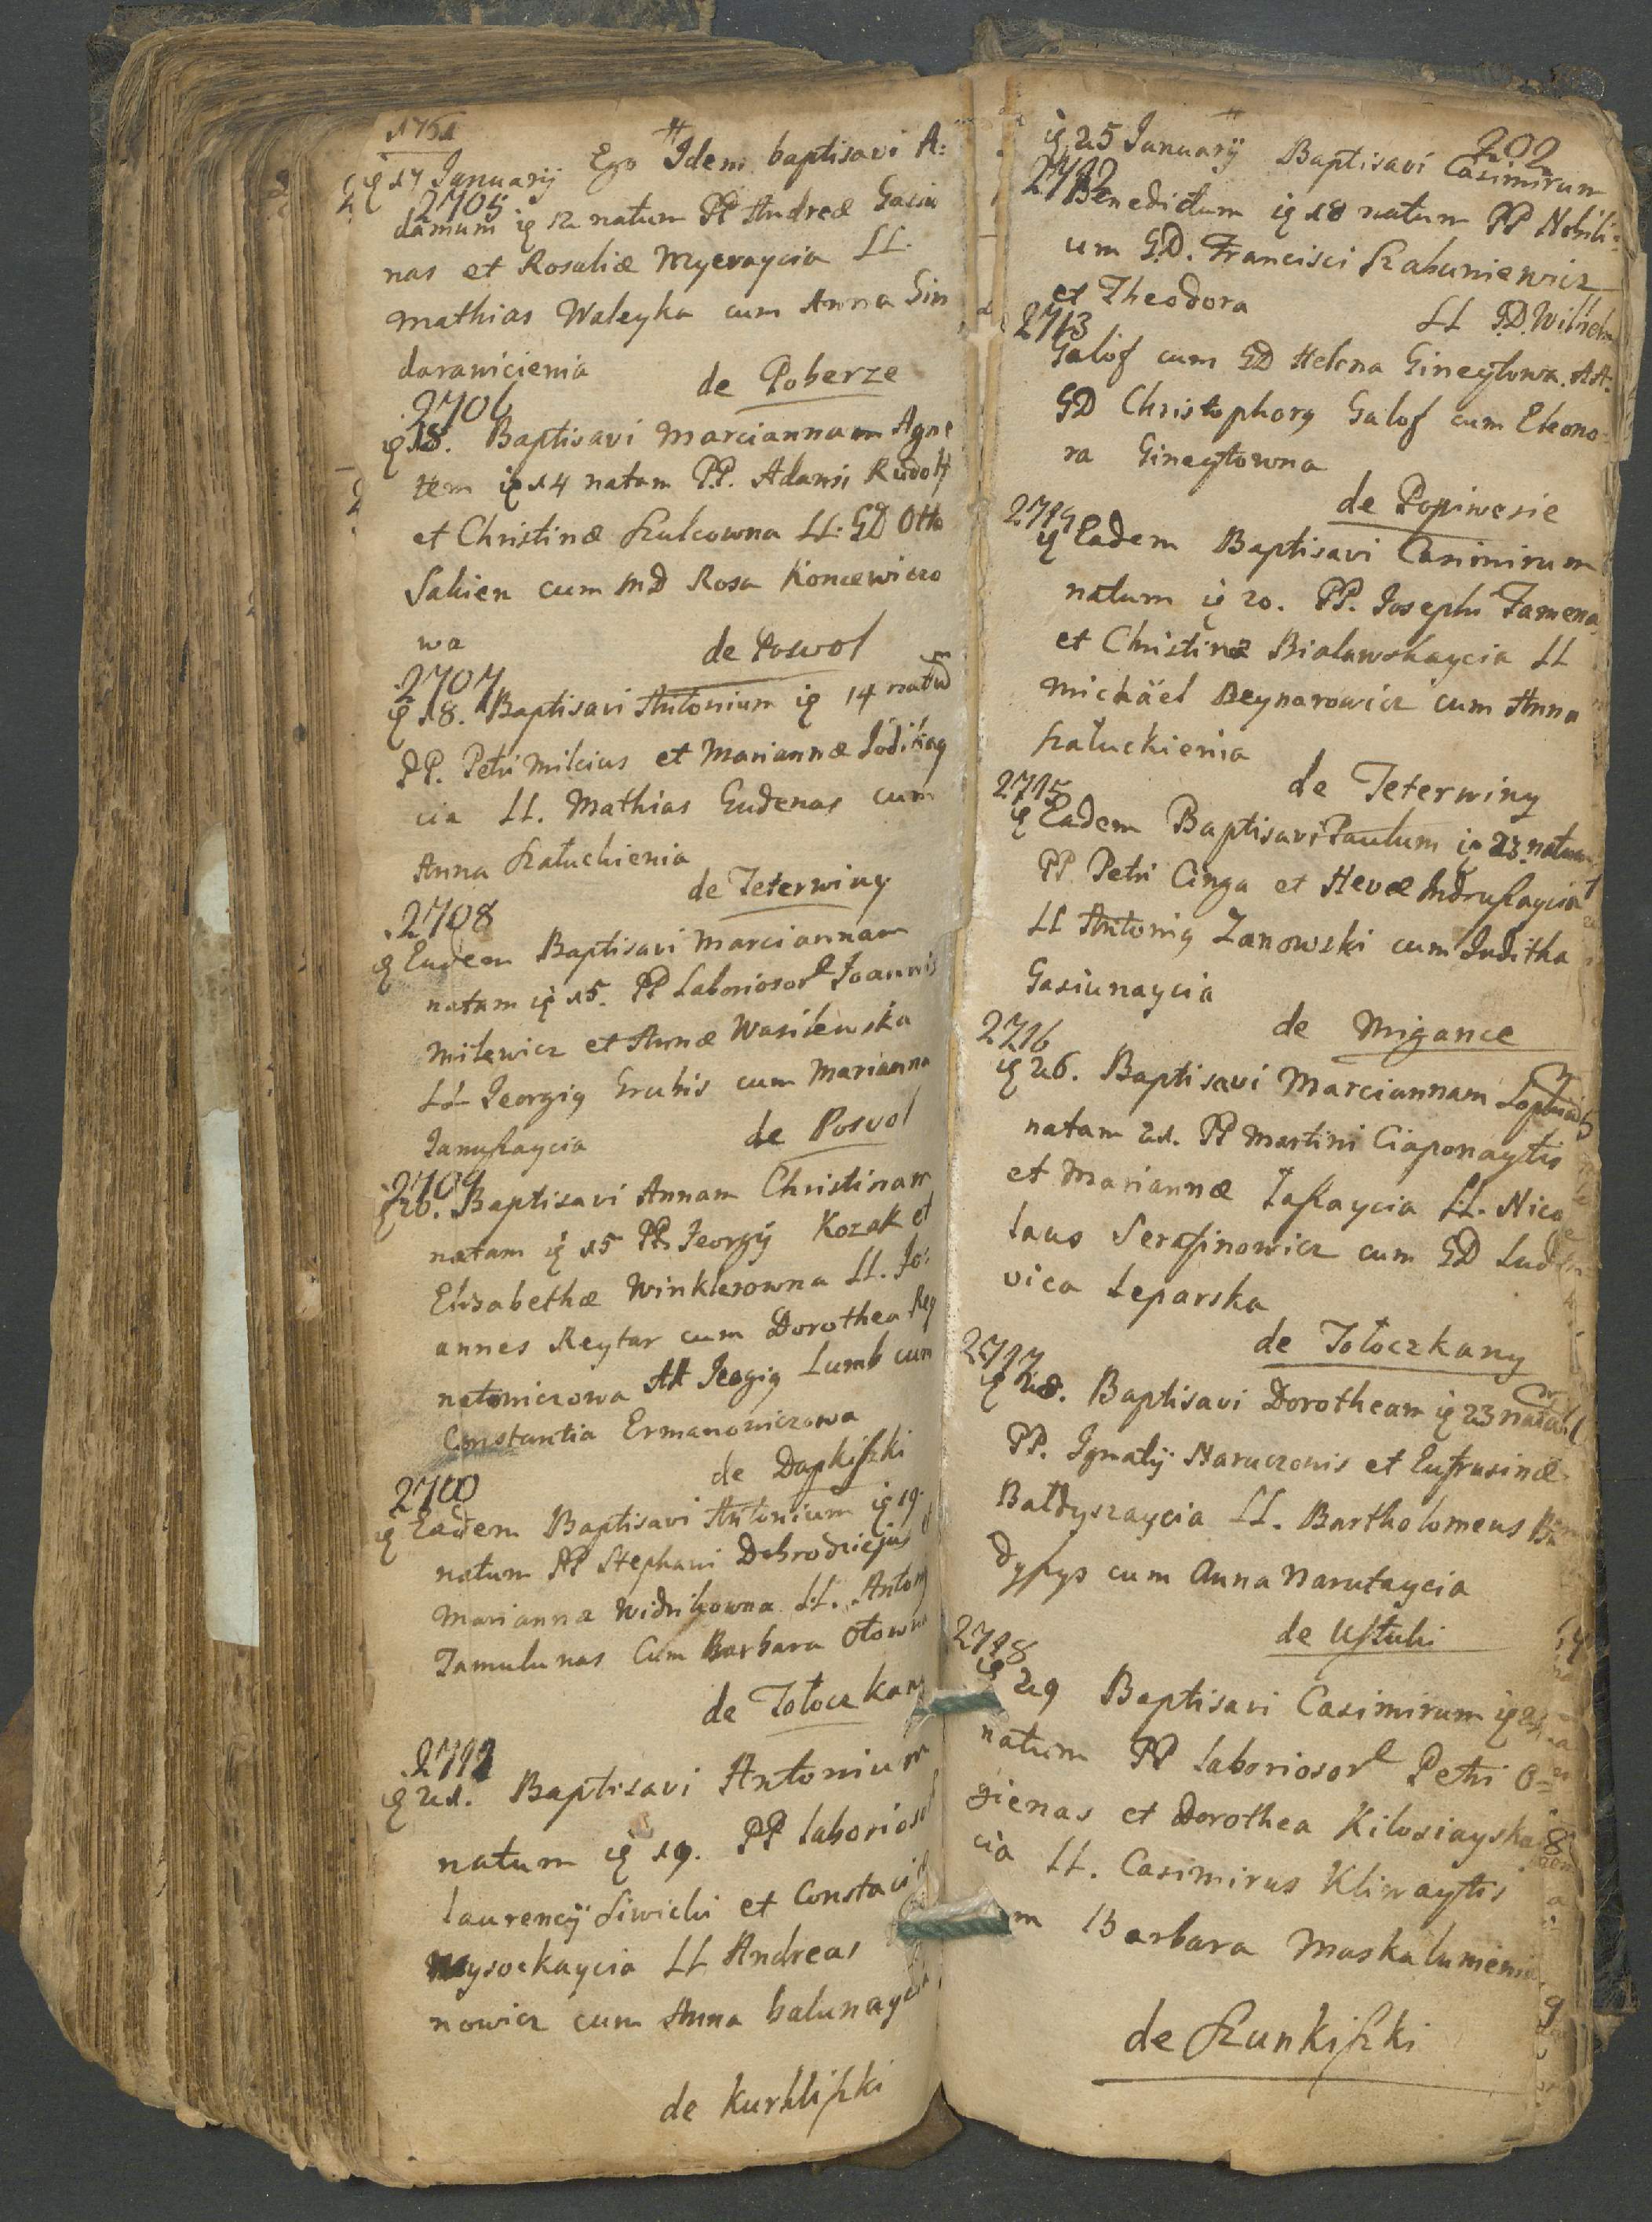 1761
17 Januarij Ego Idem baptisavi A:
2705
damum 12 natum PP Andreæ Gasiu
nas et Rosaliæ Mycraycia LL
Mathias Waleyka cum Anna Gin
darawicienia
de Poberze
2706
18. Baptisavi Marciannam Agne
tem 14 natam P.P. Adami Rudolf
et Christinæ Szulcowna LL. GD Otto
Sakien cum MD Rosa Koncewiczo
wa
de Poswol
2707
18. Baptisavi Antonium 14 natum
PP. Petri Milcius et Mariannæ Jodikay
cia LL. Mathias Gudenas cum
Anna Szałuckienia
de Teterwiny
2708
Eadem Baptisavi Marciannam
natam 15. PP Laboriosor Joannis
Milewicz et Annæ Wasilewska
LL Georgig Grubis cum Marianna
Januszaycia
de Posvol
2709
20. Baptisavi Annam Christinam
natam 15 PP. Georgij Kozak et
Elisabethæ Winklerowna LL. Jo:
annes Reytar cum Dorothea Rey
natowiczowa AA Jeogig Lumb cum
Constantia Ermanowiczowa
de Dapkiszki
2710
Eadem Baptisavi Antonium 19.
natum PP Stephani Dobrodziejus
Marianna Widrikowna LL. Antonj
Jamulunas Cum Barbara Otowna
de Tołoczkany
2711
21. Baptisavi Antonium
natum 19. PP laborios
laurencij Siwicki et Constaci
Wysockaycia LL Andreas
nowicz cum Anna balunaycia
de Kurkliszki
202
25 Januarij Baptisavi Casimirum
2712
Benedictum 18 natum PP Nobili=
um G.D. Francisci Szabuniewicz
et Theodora LL G.D. Wilhelm
2713
Galof cum GD Helena Gineytowna. AA.
GD Christophorg Galof cum Eleono=
ra Gineytowna
de Popiwesie
2714
Eadem Baptisavi Casimirum
natum 20. PP. Josephi Tamena
et Christina Bialawskaycia LL
Michäel Beynarowicz cum Anna
Szałuckienia
de Teterwiny
2715
Eadem Baptisavi Paulum 23. natum
PP Petri Cinga et Hevæ Andruszaycia
LL Antonig Zanowski cum Juditha
Gasiunaycia
de Migance
2716
26. Baptisavi Marciannam Sophiam
natam 21. PP Martini Ciaponaytis
et Mariannæ Jaszaycia LL. Nico
laus Serafinowicz cum GD Lud
vica Leparska
de Tołoczkany
2717
28. Baptisavi Dorotheam 23 natam
PP. Ignatij Naruczonis et Eufrusinæ
Bałdyszaycia LL. Bartholomeus Ba
dyszys cum Anna Narutaycia
de Usztuki
2718
29 Baptisavi Casimirum
natum PP laboriosor Petri O=
gienas et Dorothea Kilosiayska
cia LL. Casimirus Kliwaytis
m Barbara Maskalunienia
de Szunkiszki